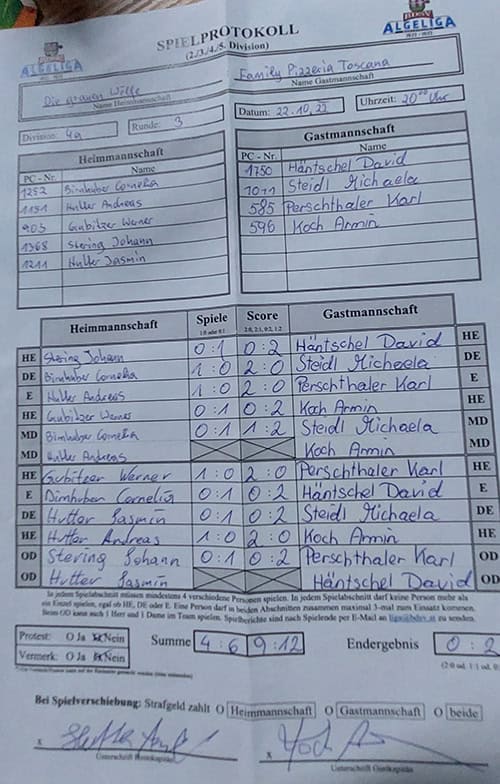 SPIELPROTOKOLL
(2./3./4./5. Division)
ALGELIGA
ALGELIGA
Die grauen Wölfe
Name Heimmannschaft
Family Pizzeria Toscana
Name Gastmannschaft
Division: 4a Runde: 3 Datum: 22.10.23 Uhrzeit: 20⁰⁰ Uhr
Heimmannschaft
PC - Nr. Name
1252 Birnhuber Cornelia
1151 Hutter Andreas
903 Gubitzer Werner
1368 Stering Johann
1211 Hutter Jasmin
Gastmannschaft
PC - Nr. Name
1750 Häntschel David
1011 Steidl Michaela
585 Perschthaler Karl
596 Koch Armin
Heimmannschaft Spiele Score Gastmannschaft
1:0 oder 0:1 2:0, 2:1, 0:2, 1:2
HE Stering Johann 0:1 0:2 Häntschel David HE
DE Birnhuber Cornelia 1:0 2:0 Steidl Michaela DE
E Hutter Andreas 1:0 2:0 Perschthaler Karl E
HE Gubitzer Werner 0:1 0:2 Koch Armin HE
MD Birnhuber Cornelia 0:1 1:2 Steidl Michaela MD
MD Hutter Andreas Koch Armin MD
HE Gubitzer Werner 1:0 2:0 Perschthaler Karl HE
E Birnhuber Cornelia 0:1 0:2 Häntschel David E
DE Hutter Jasmin 0:1 0:2 Steidl Michaela DE
HE Hutter Andreas 1:0 2:0 Koch Armin HE
OD Stering Johann 0:1 0:2 Perschthaler Karl OD
OD Hutter Jasmin Häntschel David OD
In jedem Spielabschnitt müssen mindestens 4 verschiedene Personen spielen. In jedem Spielabschnitt darf keine Person mehr als
ein Einzel spielen, egal ob HE, DE oder E. Eine Person darf in beiden Abschnitten zusammen maximal 3-mal zum Einsatz kommen.
Beim OD kann auch 1 Herr und 1 Dame im Team spielen. Spielberichte sind nach Spielende per E-Mail an liga@bdsv.at zu senden.
Protest: O Ja Nein Summe 4:6 9:12 Endergebnis 0:2
Vermerk: O Ja Nein
Bei Spielverschiebung: Strafgeld zahlt O Heimmannschaft O Gastmannschaft O beide
x x
Unterschrift Heimkapitän Unterschrift Gastkapitän